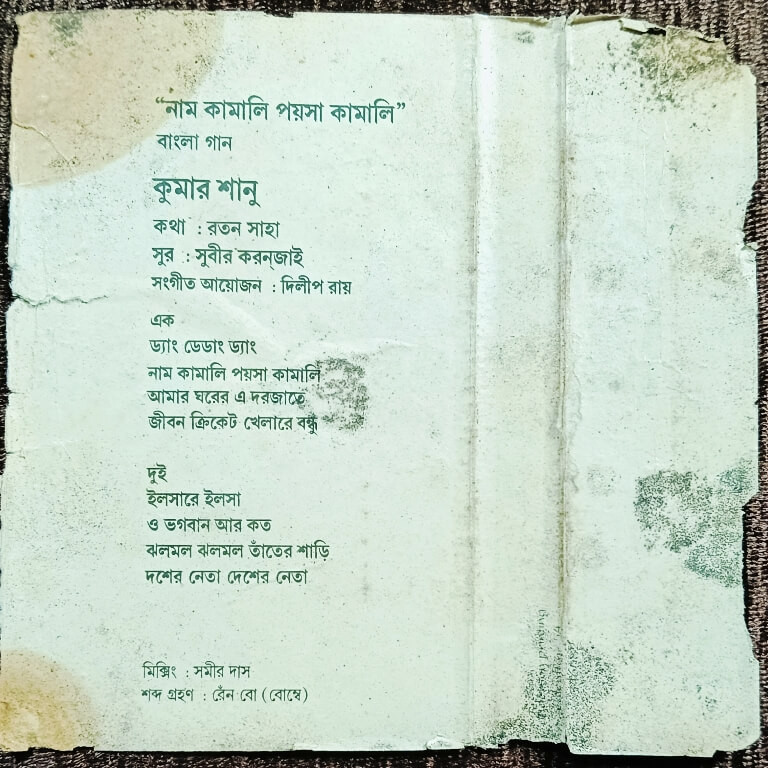 “নাম কামালি পয়সা কামালি”
বাংলা গান
কুমার শানু
কথা : রতন সাহা
সুর : সুবীর করন্জাই
সংগীত আয়োজন : দিলীপ রায়
এক
ড্যাং ডেডাং ড্যাং
নাম কামালি পয়সা কামালি
আমার ঘরের এ দরজাতে
জীবন ক্রিকেট খেলারে বন্ধু
দুই
ইলসারে ইলসা
ও ভগবান আর কত
ঝলমল ঝলমল তাঁতের শাড়ি
দশের নেতা দেশের নেতা
মিক্সিং : সমীর দাস
শব্দ গ্রহণ : রেঁন বো (বোম্বে)